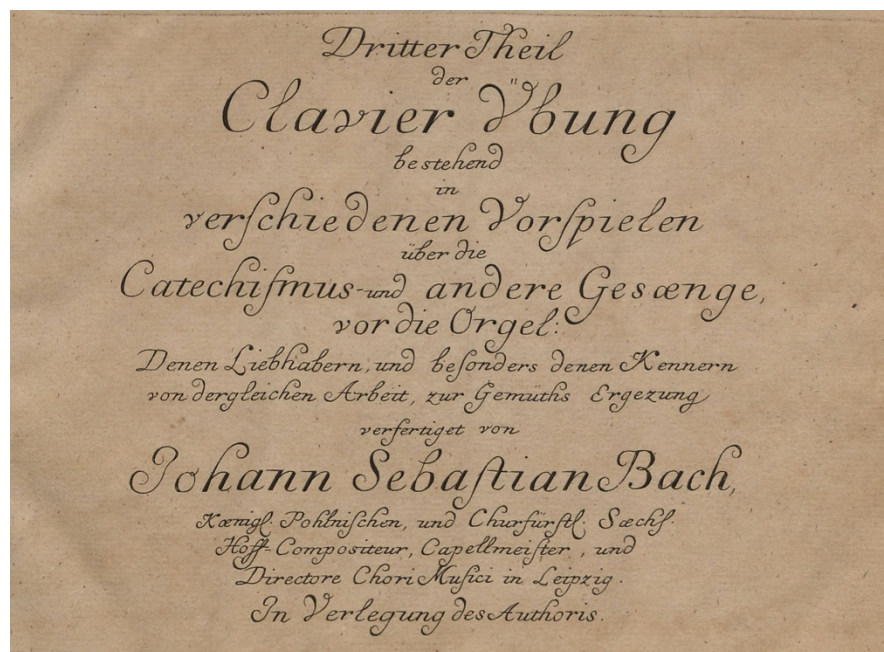 Dritter Theil
der
Clavier Übung
bestehend
in
verſchiedenen Vorſpielen
über die
Catechiſmus-und andere Gesænge,
vor die Orgel:
Denen Liebhabern, und beſonders denen Kennern
von dergleichen Arbeit, zur Gemüths Ergezung
verfertiget von
Johann Sebaſtian Bach,
Kœnigl. Pohlniſchen, und Churfürſtl. Sæchſ.
Hoff-Compositeur, Capellmeiſter, und
Directore Chori Muſici in Leipzig.
In Verlegung des Authoris.